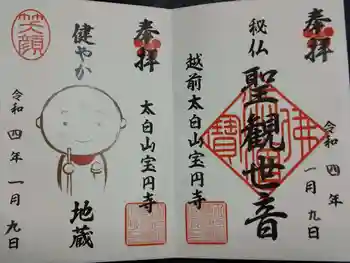 奉拝
秘仏
聖観世音
越前太白山宝円寺
令和四年一月九日
奉拝
健やか
地蔵
笑顔
太白山宝円寺
令和四年一月九日